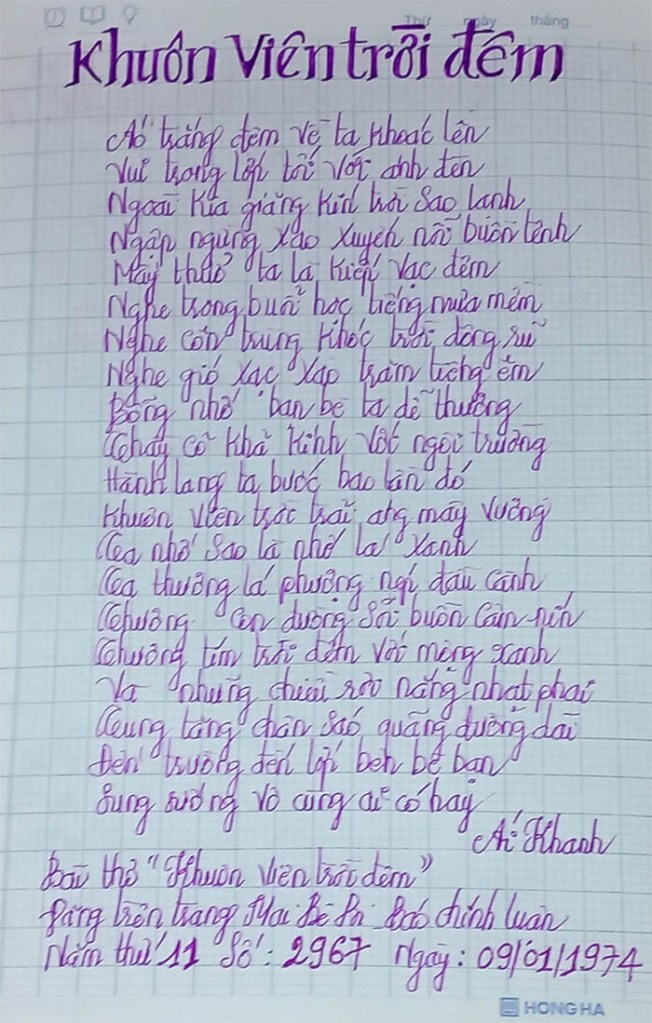 Thứ ngày tháng
Khuôn Viên trời đêm
Áo trắng đêm về ta khoác lên
Vui trong lớp tối với ánh đèn
Ngoài kia giăng kín trời sao lạnh
Ngập ngừng xao xuyến nỗi buồn tênh
Mấy thuở ta là kiếp vạc đêm
Nghe trong buổi học tiếng mưa mềm
Nghe côn trùng khóc trời đông rũ
Nghe gió xạc xào trăm tiếng êm
Bỗng nhớ bạn bè ta dễ thương
Thầy cô khả kính với ngôi trường
Hành lang ta bước bao lần đó
Khuôn viên trời trải áng mây vương
Ta nhớ sao là nhớ lá xanh
Ta thương lá phượng ngủ đầu cành
Thương con đường sỏi buồn câm nín
Thương tím trời đêm với mộng xanh
Và những chiều rơi nắng nhạt phai
Tung tăng chân sáo quãng đường dài
Đến trường đến lớp bên bè bạn
Sung sướng vô cùng ai có hay
Ái Khanh
Bài thơ "Khuôn viên trời đêm"
Đăng trên trang Mai Bê Bi Báo chính luận
Năm thứ 11 Số: 2967 Ngày: 09/01/1974
HONG HA